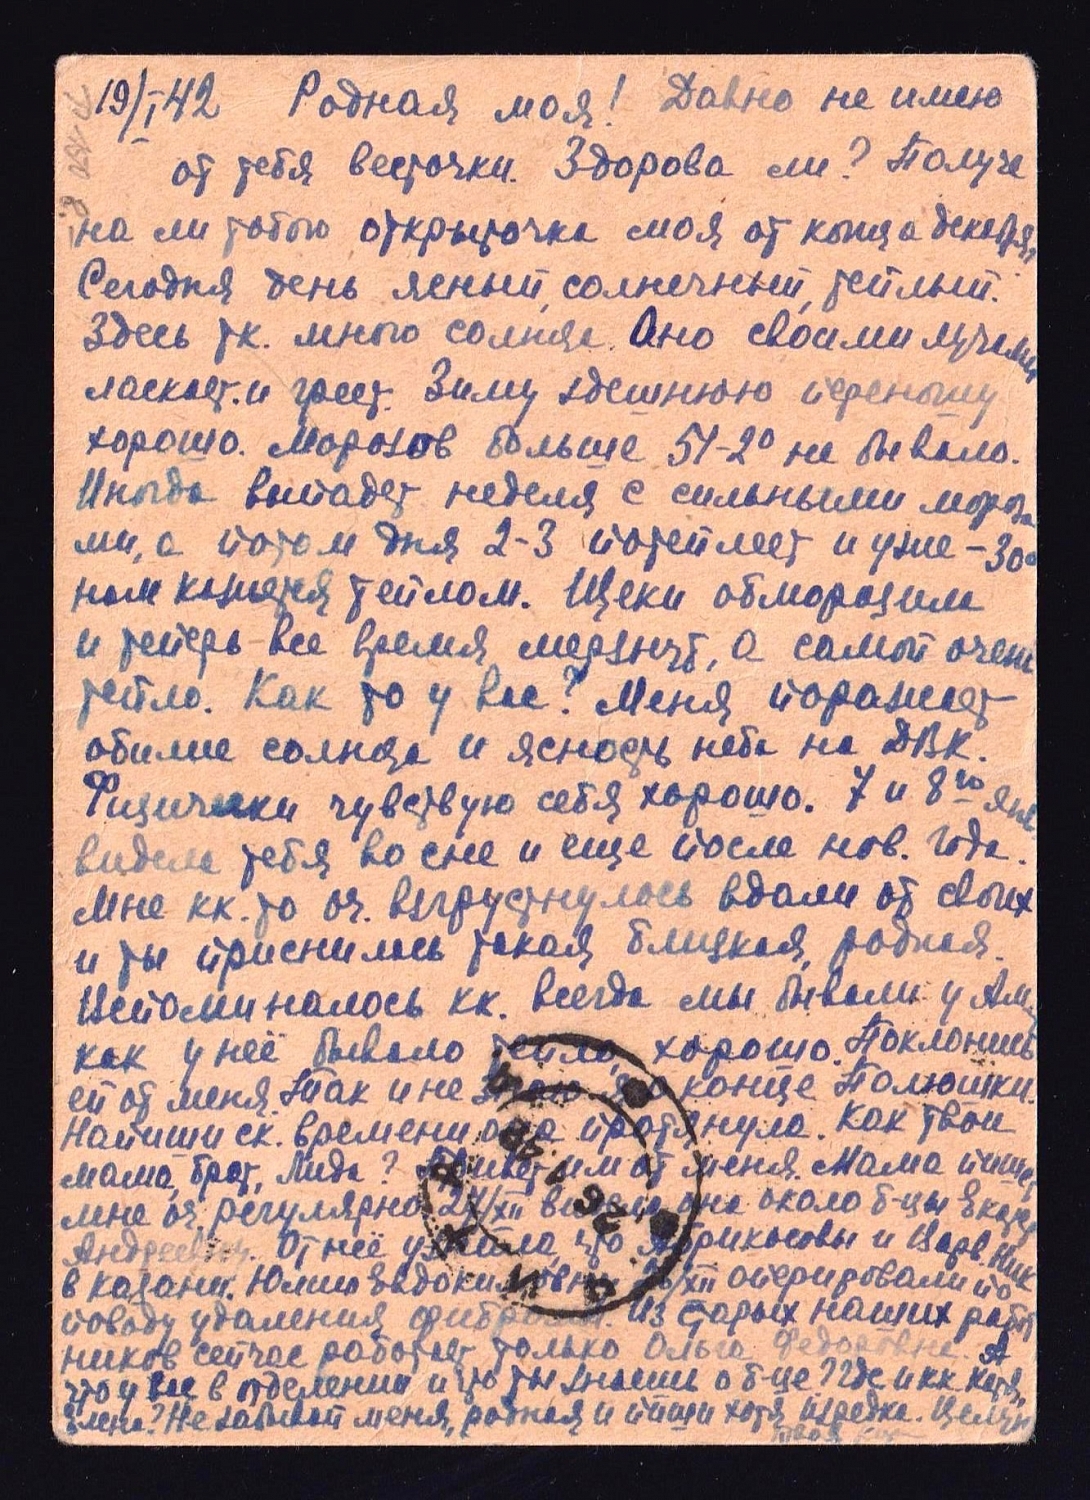 19/I-42 Родная моя! Давно не имею
от тебя весточки. Здорова ли? Получе
на ли тобою открыточка моя от конца декабря,
Сегодня день ясный, солнечный, теплый.
Здесь тк. много солнца. Оно своими лучами
ласкает и греет. Зиму здешнюю переношу
хорошо. Морозов больше 51-2° не бывало.
Иногда выпадет неделя с сильными мороза
ми, а потом дня 2-3 потеплеет и уже -30°
нам кажется теплом. Щеки обморозила
и теперь все время мерзнут, а самой очень
тепло. Как то у вас? Меня поражает
обилие солнца и ясность неба на ДВК.
Физически чувствую себя хорошо. 7 и 8го янв.
видела тебя во сне и еще после нов. года.
Мне кк. то оч. взгрустнулось вдали от своих
и ты приснилась такая близкая, родная.
Вспоминалось кк. всегда мы бывали у Ам.
как у неё бывало тепло, хорошо. Поклонись
ей от меня. Так и не знаю я о конце Полюшки.
Напиши ск. времени она протянула. Как твои
мама, брат, Лида? Привет им от меня. Мама пишет
мне оч. регулярно. 24/XII видела она около б-цы Екатер
Андреевну. От неё узнала, что Абрикосовы и Варв. Ник
в Казани. Юлию Евдокимовну /XII оперировали по
поводу удаления фибромы. Из старых наших работ
ников сейчас работает только Ольга Федоровна. А
что у вас в отделении и что ты знаешь о б-це? Где и кк Катя,
Елена? Не забывай меня, родная и пиши хотя изредка. Целую
твоя
26 1 42